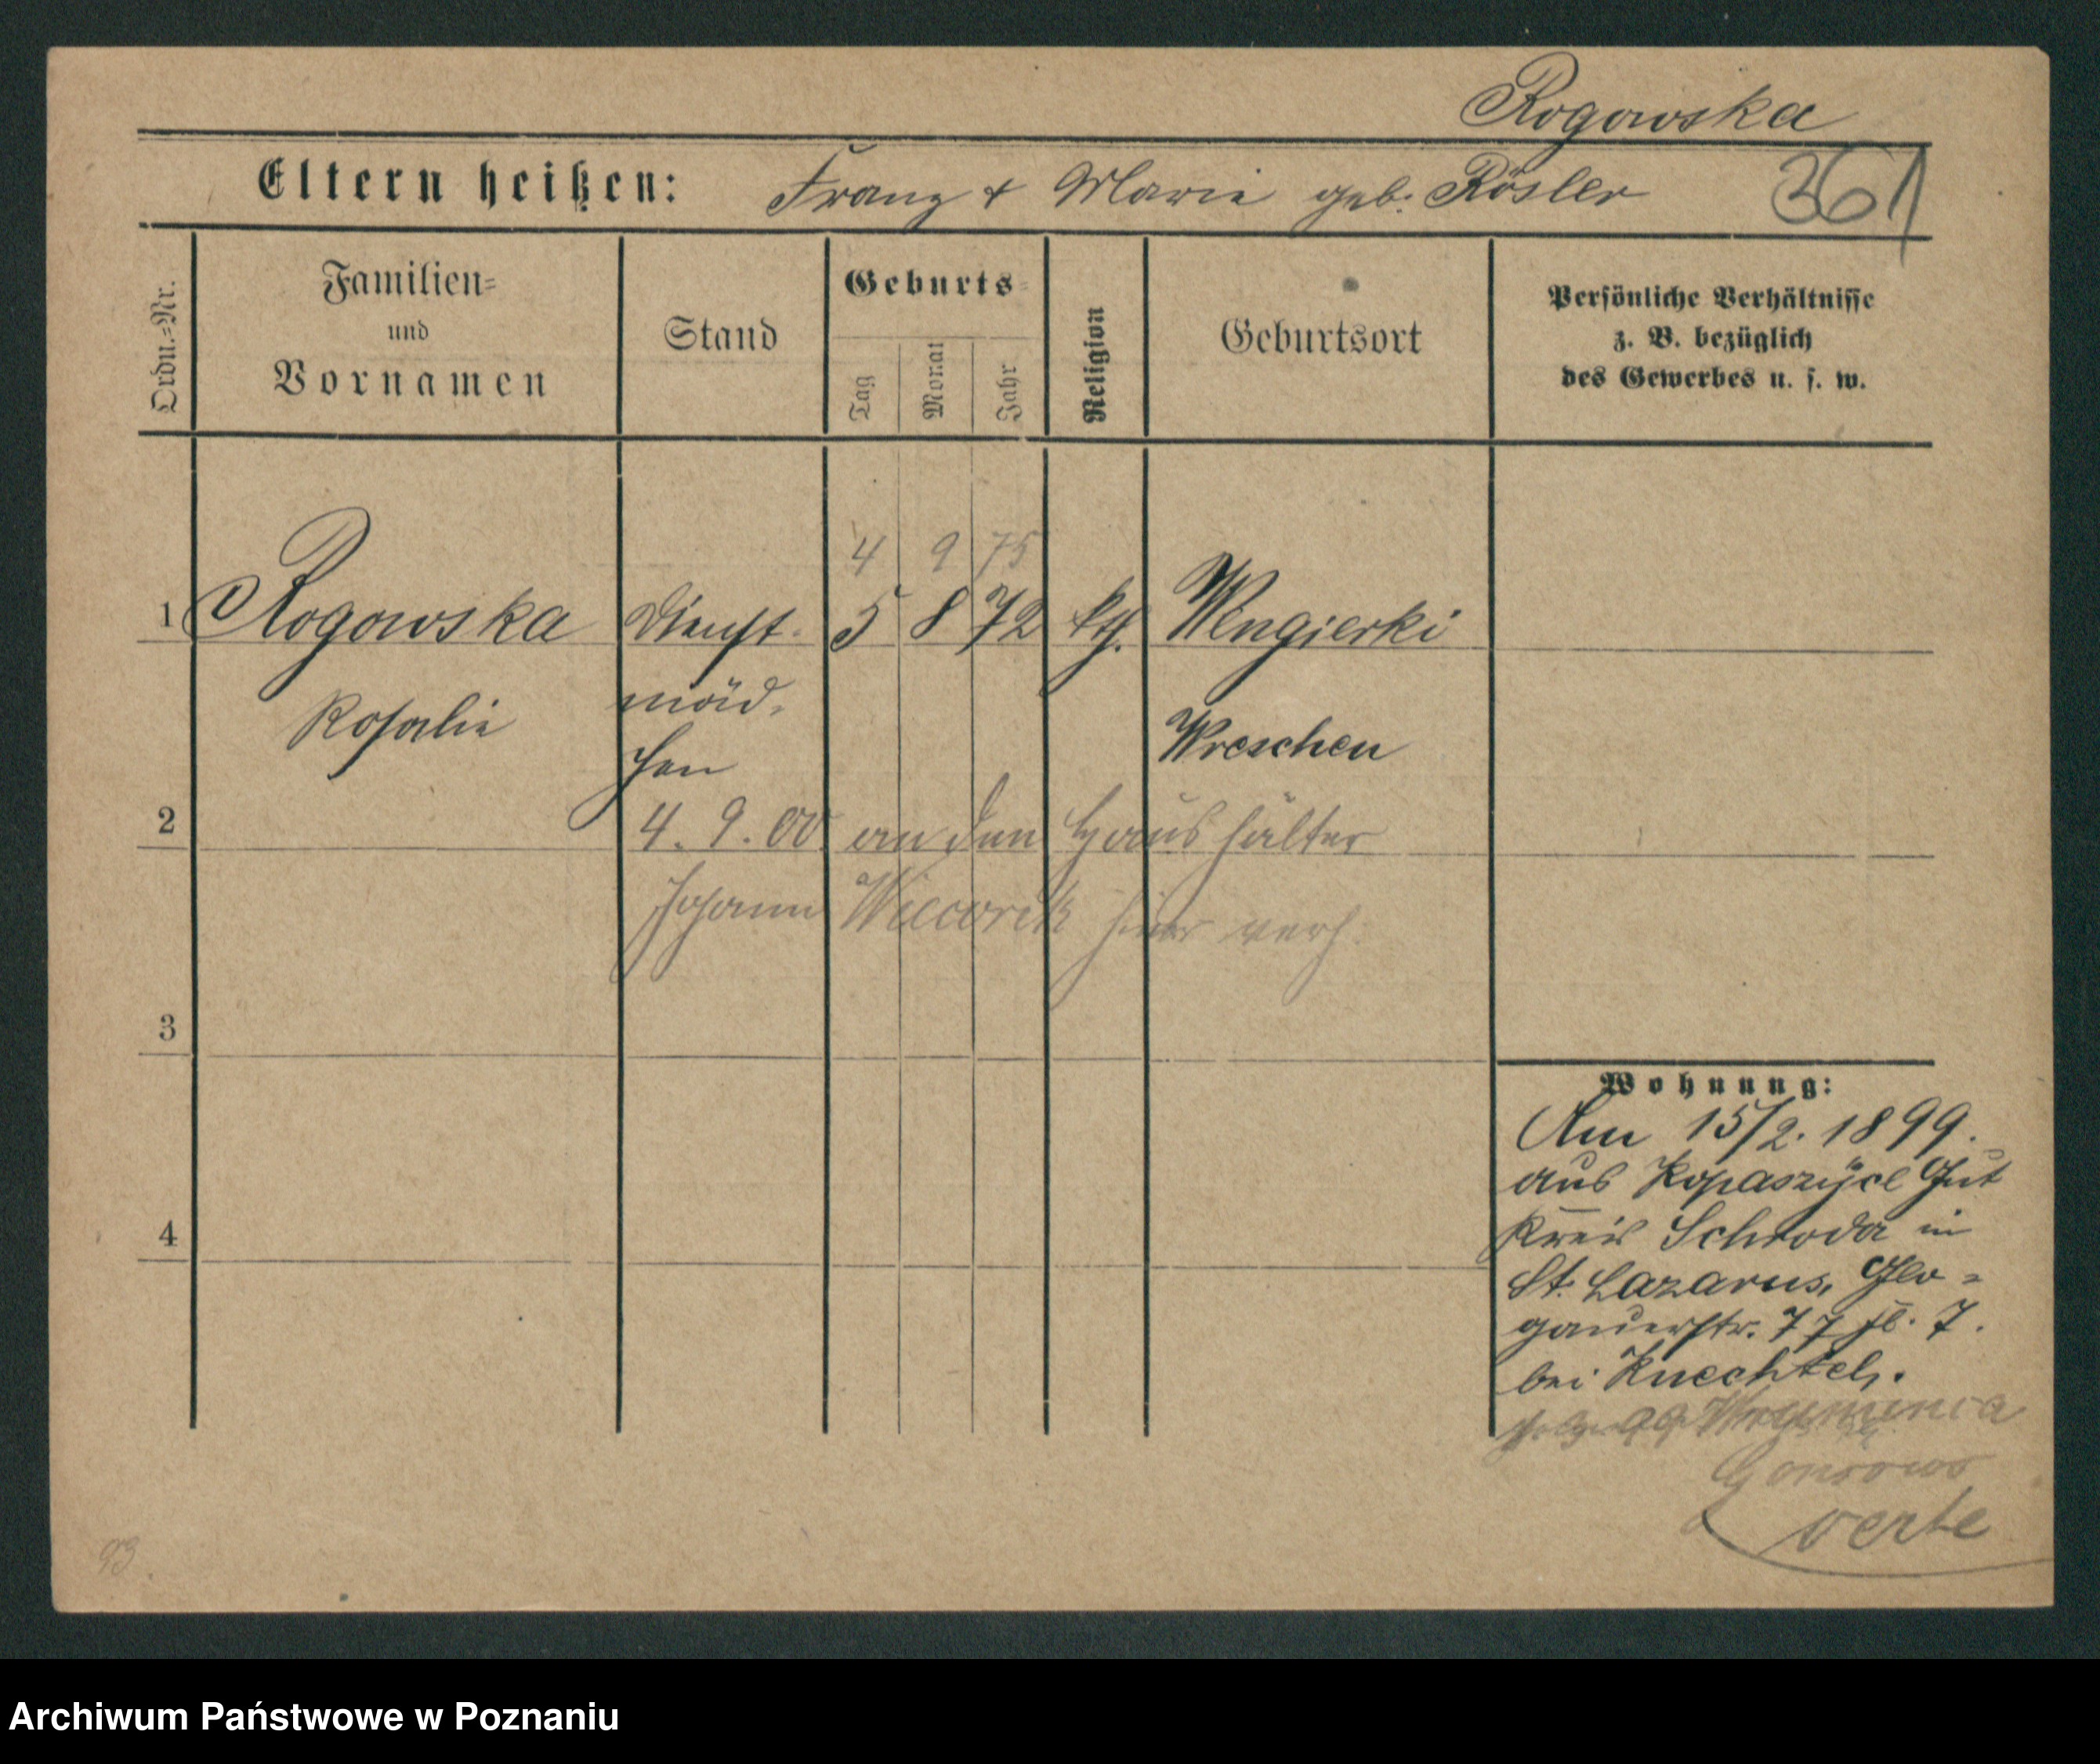 Rogowska
Eltern heißen: Franz & Marie geb. Rösler 361
Ordn.-Nr.
Familien-
und
Vornamen
Stand
Geburts-
Tag
Monat
Jahr
Religion
Geburtsort
Persönliche Verhältnisse
z. B. bezüglich
des Gewerbes u. s. w.
4 9 75
1 Rogowska Dienst- 5 8 72 kth. Wengierki
Rosalie mäd-
chen Wreschen
2 4. 9. 00 an den Haushälter
Johann hier verh.
3
4
Wohnung:
Am 15/2. 1899.
aus Kopaszyce Gut
Kreis Schroda in
St. Lazarus, Glo-
gauerstr. 77 fl. 7.
bei Knechtel.
verte
93
Archiwum Państwowe w Poznaniu